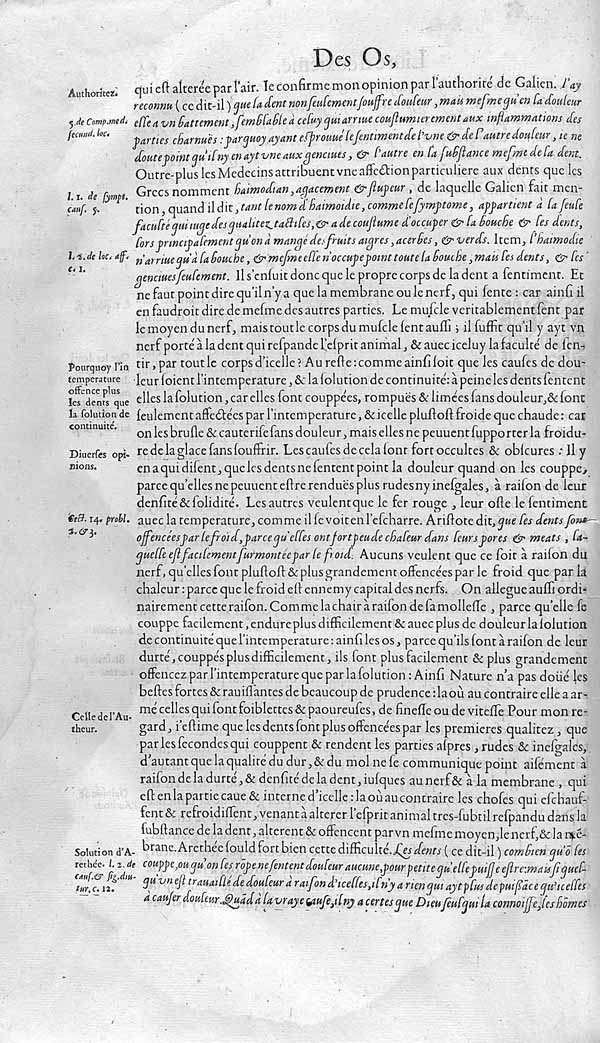 Des Os,
Authoritez.
qui est alterée par l'air. Ie confirme mon opinion par l'authorité de Galien. I'ay
reconnu (ce dit-il) que la dent non seulement souffre douleur, mais mesme qu'en sa douleur
5. de Comp. med. secund. loc.
elle a vn battement, semblable à celuy qui arriue coustumierement aux inflammations des
parties charnuës: parquoy ayant esprouué le sentiment de l'vne & de l'autre douleur, ie ne
doute point qu'il n'y en ayt vne aux genciues, & l'autre en la substance mesme de la dent.
Outre-plus les Medecins attribuent vne affection particuliere aux dents que les
Grecs nomment haimodian, agacement & stupeur, de laquelle Galien fait men-
l. 1. de sympt. caus. 5.
tion, quand il dit, tant le nom d'haimoidie, comme le symptome, appartient à la seule
faculté qui iuge des qualitez tactiles, & a de coustume d'occuper & la bouche & les dents,
lors principalement qu'on a mangé des fruits aigres, acerbes, & verds. Item, l'haimodie
l. 2. de loc. aff. c. 1.
n'arriue qu'à la bouche, & mesme elle n'occupe point toute la bouche, mais les dents, & les
genciues seulement. Il s'ensuit donc que le propre corps de la dent a sentiment. Et
ne faut point dire qu'il n'y a que la membrane ou le nerf, qui sente: car ainsi il
en faudroit dire de mesme des autres parties. Le muscle veritablement sent par
le moyen du nerf, mais tout le corps du muscle sent aussi; il suffit qu'il y ayt vn
nerf porté à la dent qui respande l'esprit animal, & auec iceluy la faculté de sen-
Pourquoy l'intemperature offence plus les dents que la solution de continuité.
tir, par tout le corps d'icelle? Au reste: comme ainsi soit que les causes de dou-
leur soient l'intemperature, & la solution de continuité: à peine les dents sentent
elles la solution, car elles sont couppées, rompuës & limées sans douleur, & sont
seulement affectées par l'intemperature, & icelle plustost froide que chaude: car
on les brusle & cauterise sans douleur, mais elles ne peuuent supporter la froidu-
Diuerses opinions.
re de la glace sans souffrir. Les causes de cela sont fort occultes & obscures: Il y
en a qui disent, que les dents ne sentent point la douleur quand on les couppe,
parce qu'elles ne peuuent estre renduës plus rudes ny inesgales, à raison de leur
densité & solidité. Les autres veulent que le fer rouge, leur oste le sentiment
Sect. 14. probl. 2. & 3.
auec la temperature, comme il se voit en l'escharre. Aristote dit, que les dents sont
offencées par le froid, parce qu'elles ont fort peu de chaleur dans leurs pores & meats, la-
quelle est facilement surmontée par le froid. Aucuns veulent que ce soit à raison du
nerf, qu'elles sont plustost & plus grandement offencées par le froid que par la
chaleur: parce que le froid est ennemy capital des nerfs. On allegue aussi ordi-
nairement cette raison. Comme la chair à raison de sa mollesse, parce qu'elle se
couppe facilement, endure plus difficilement & auec plus de douleur la solution
de continuité que l'intemperature: ainsi les os, parce qu'ils sont à raison de leur
durté, couppés plus difficilement, ils sont plus facilement & plus grandement
offencez par l'intemperature que par la solution: Ainsi Nature n'a pas doüé les
bestes fortes & rauissantes de beaucoup de prudence: la où au contraire elle a ar-
mé celles qui sont foiblettes & paoureuses, de finesse ou de vitesse Pour mon re-
Celle de l'Autheur.
gard, i'estime que les dents sont plus offencées par les premieres qualitez, que
par les secondes qui couppent & rendent les parties aspres, rudes & inesgales,
d'autant que la qualité du dur, & du mol ne se communique point aisément à
raison de la durté, & densité de la dent, iusques au nerf & à la membrane, qui
est en la partie caue & interne d'icelle: la où au contraire les choses qui eschauf-
fent & refroidissent, venant à alterer l'esprit animal tres-subtil respandu dans la
substance de la dent, alterent & offencent par vn mesme moyen, le nerf, & la mẽ-
Solution d'Arethée. l. 2. de caus. & sig. diutur. c. 12.
brane. Arethée sould fort bien cette difficulté. Les dents (ce dit-il) combien qu'õ les
couppe, ou qu'on les rõpe ne sentent douleur aucune, pour petite qu'elle puisse estre: mais si quel-
qu'vn est trauaillé de douleur à raison d'icelles, il n'y a rien qui ayt plus de puissãce qu'icelles
à causer douleur. Quãd à la vraye cause, il n'y a certes que Dieu seul qui la connoisse, les hõmes